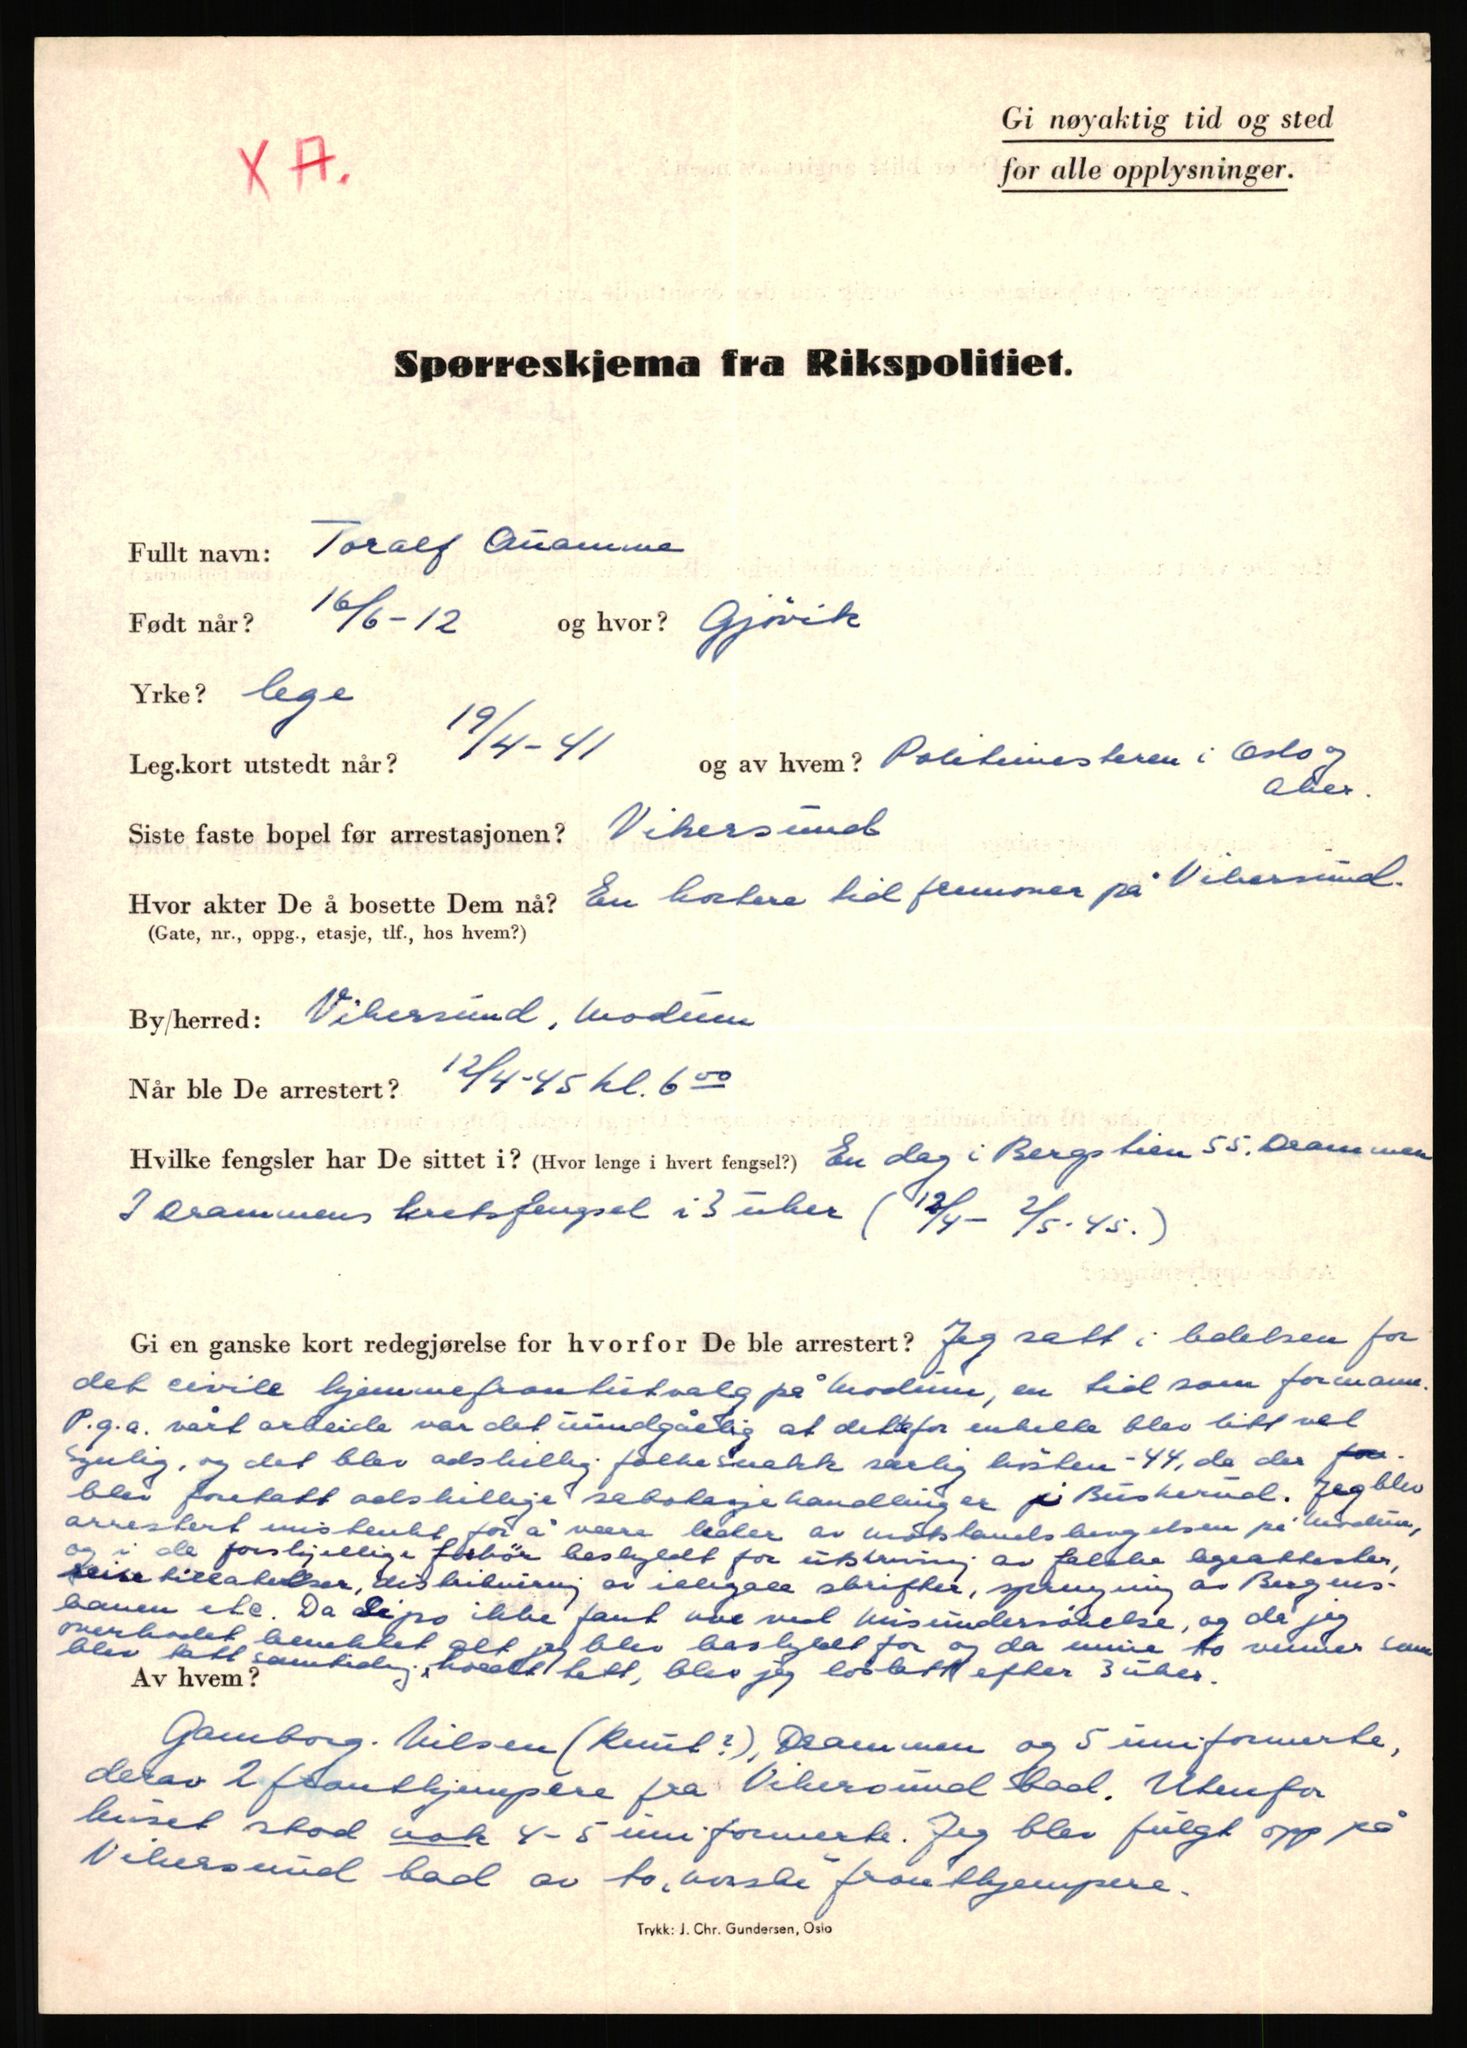 Gi nøyaktig tid og sted
for alle opplysninger.
X A.
Spørreskjema fra Rikspolitiet.
Fullt navn: Toralf
Født når? 16/6-12 og hvor? Gjövik
Yrke? lege
Leg.kort utstedt når? 19/4-41 og av hvem? Politimesteren i Oslo og
Aker.
Siste faste bopel før arrestasjonen? Vikersund
Hvor akter De å bosette Dem nå? En kortere tid fremover på Vikersund.
(Gate, nr., oppg., etasje, tlf., hos hvem?)
By/herred: Vikersund, Modum
Når ble De arrestert? 12/4-45 kl. 6 00
Hvilke fengsler har De sittet i? (Hvor lenge i hvert fengsel?) En dag i Bergstien 55. Drammen
I Drammens kretsfengsel i 3 uker (12/4- 2/5-45.)
Gi en ganske kort redegjørelse for hvorfor De ble arrestert? Jeg satt i ledelsen for
det civile hjemmefrontutvalg på Modum, en tid som formann.
P.g.a. vårt arbeide var det uundgåelig at dette for enkelte blev litt vel
synlig, og det blev adskillig folkesnakk særlig hösten -44, da der
blev foretatt adskillige sabotasjehandlinger i Buskerud. Jeg blev
arrestert mistenkt for å være leder av motstandsbevegelsen på Modum,
og i de forskjellige forhör beskyldt for utskrivning av falske legeattester,
reisetillatelser, distribuering av illegale skrifter, sprengning av Bergens-
banen etc. Da Sipo ikke fant noe ved husundersökelse, og da jeg
overhodet benektet alt jeg blev beskyldt for og da mine to venner som
blev tatt samtidig, holdt tett, blev jeg löslatt efter 3 uker.
Av hvem?
Gamborg-Nilsen (Knut?), Drammen og 5 uniformerte,
derav 2 frontkjempere fra Vikersund bad. Utenfor
huset stod nok 4-5 uniformerte. Jeg blev fulgt opp på
Vikersund bad av to norske frontkjempere.
Trykk: J. Chr. Gundersen, Oslo